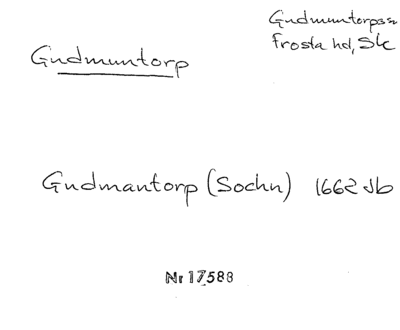 Gudmuntorps sn
Frosta hd, Sk
Gudmuntorp
Gudmantorp (Sochn) 1662 Jb
Nr 17588